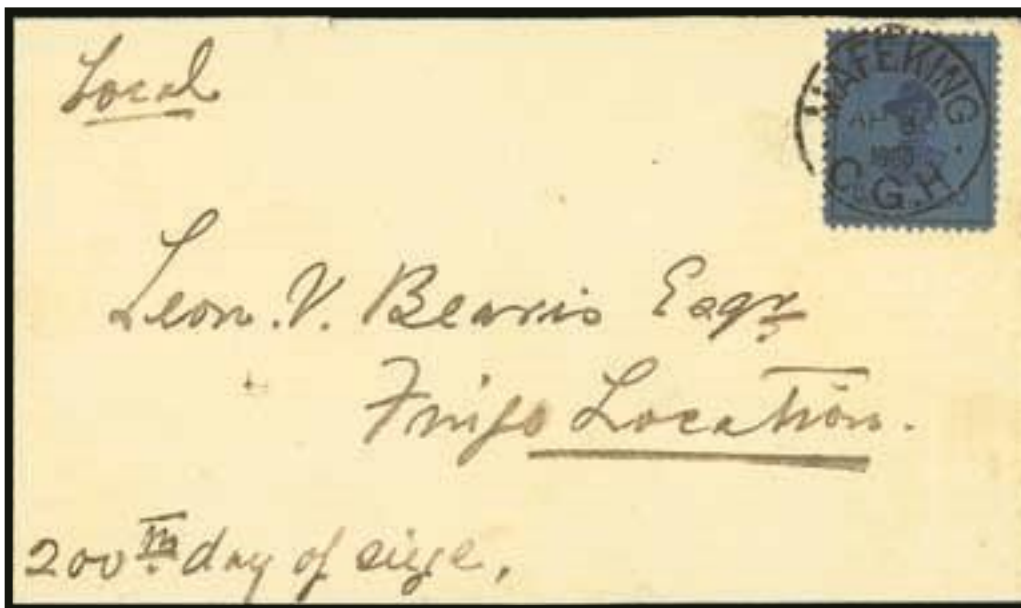 Local
MAFEKING
AP 30
1900
C.G.H
Leon. V. Bearis Esqr
Fingo Location.
200th day of siege.